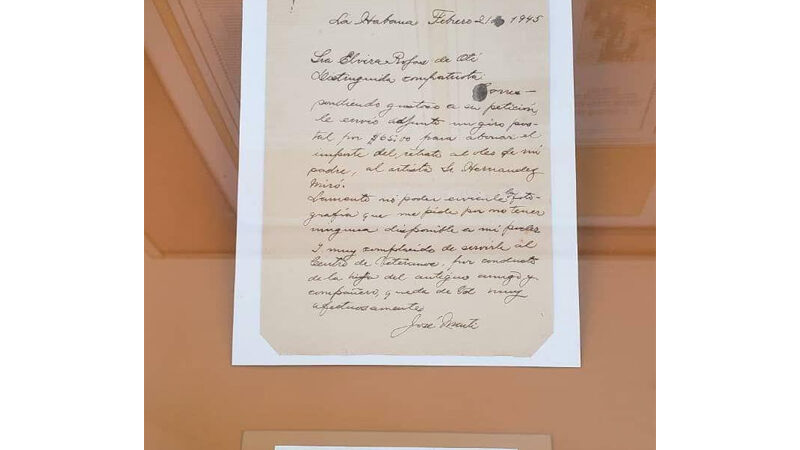 La Habana Febrero 21 1945
Sra Elvira Rojas de Oté
Distinguida compatriota
Corres-
pondiendo gustoso a su petición,
le envio adjunto un giro pos-
tal por $65.00 para abonar el
importe del retrato al oleo de mi
padre, al artista Sr Hernandez
Miró.
Lamento no poder enviarle la foto-
grafía que me pide por no tener
ninguna disponible a mi poder
Y muy complacido de servirle al
Centro de Veteranos, por conducto
de la hija del antiguo amigo y
compañero, queda de Vd muy
afectuosamente
José Martí